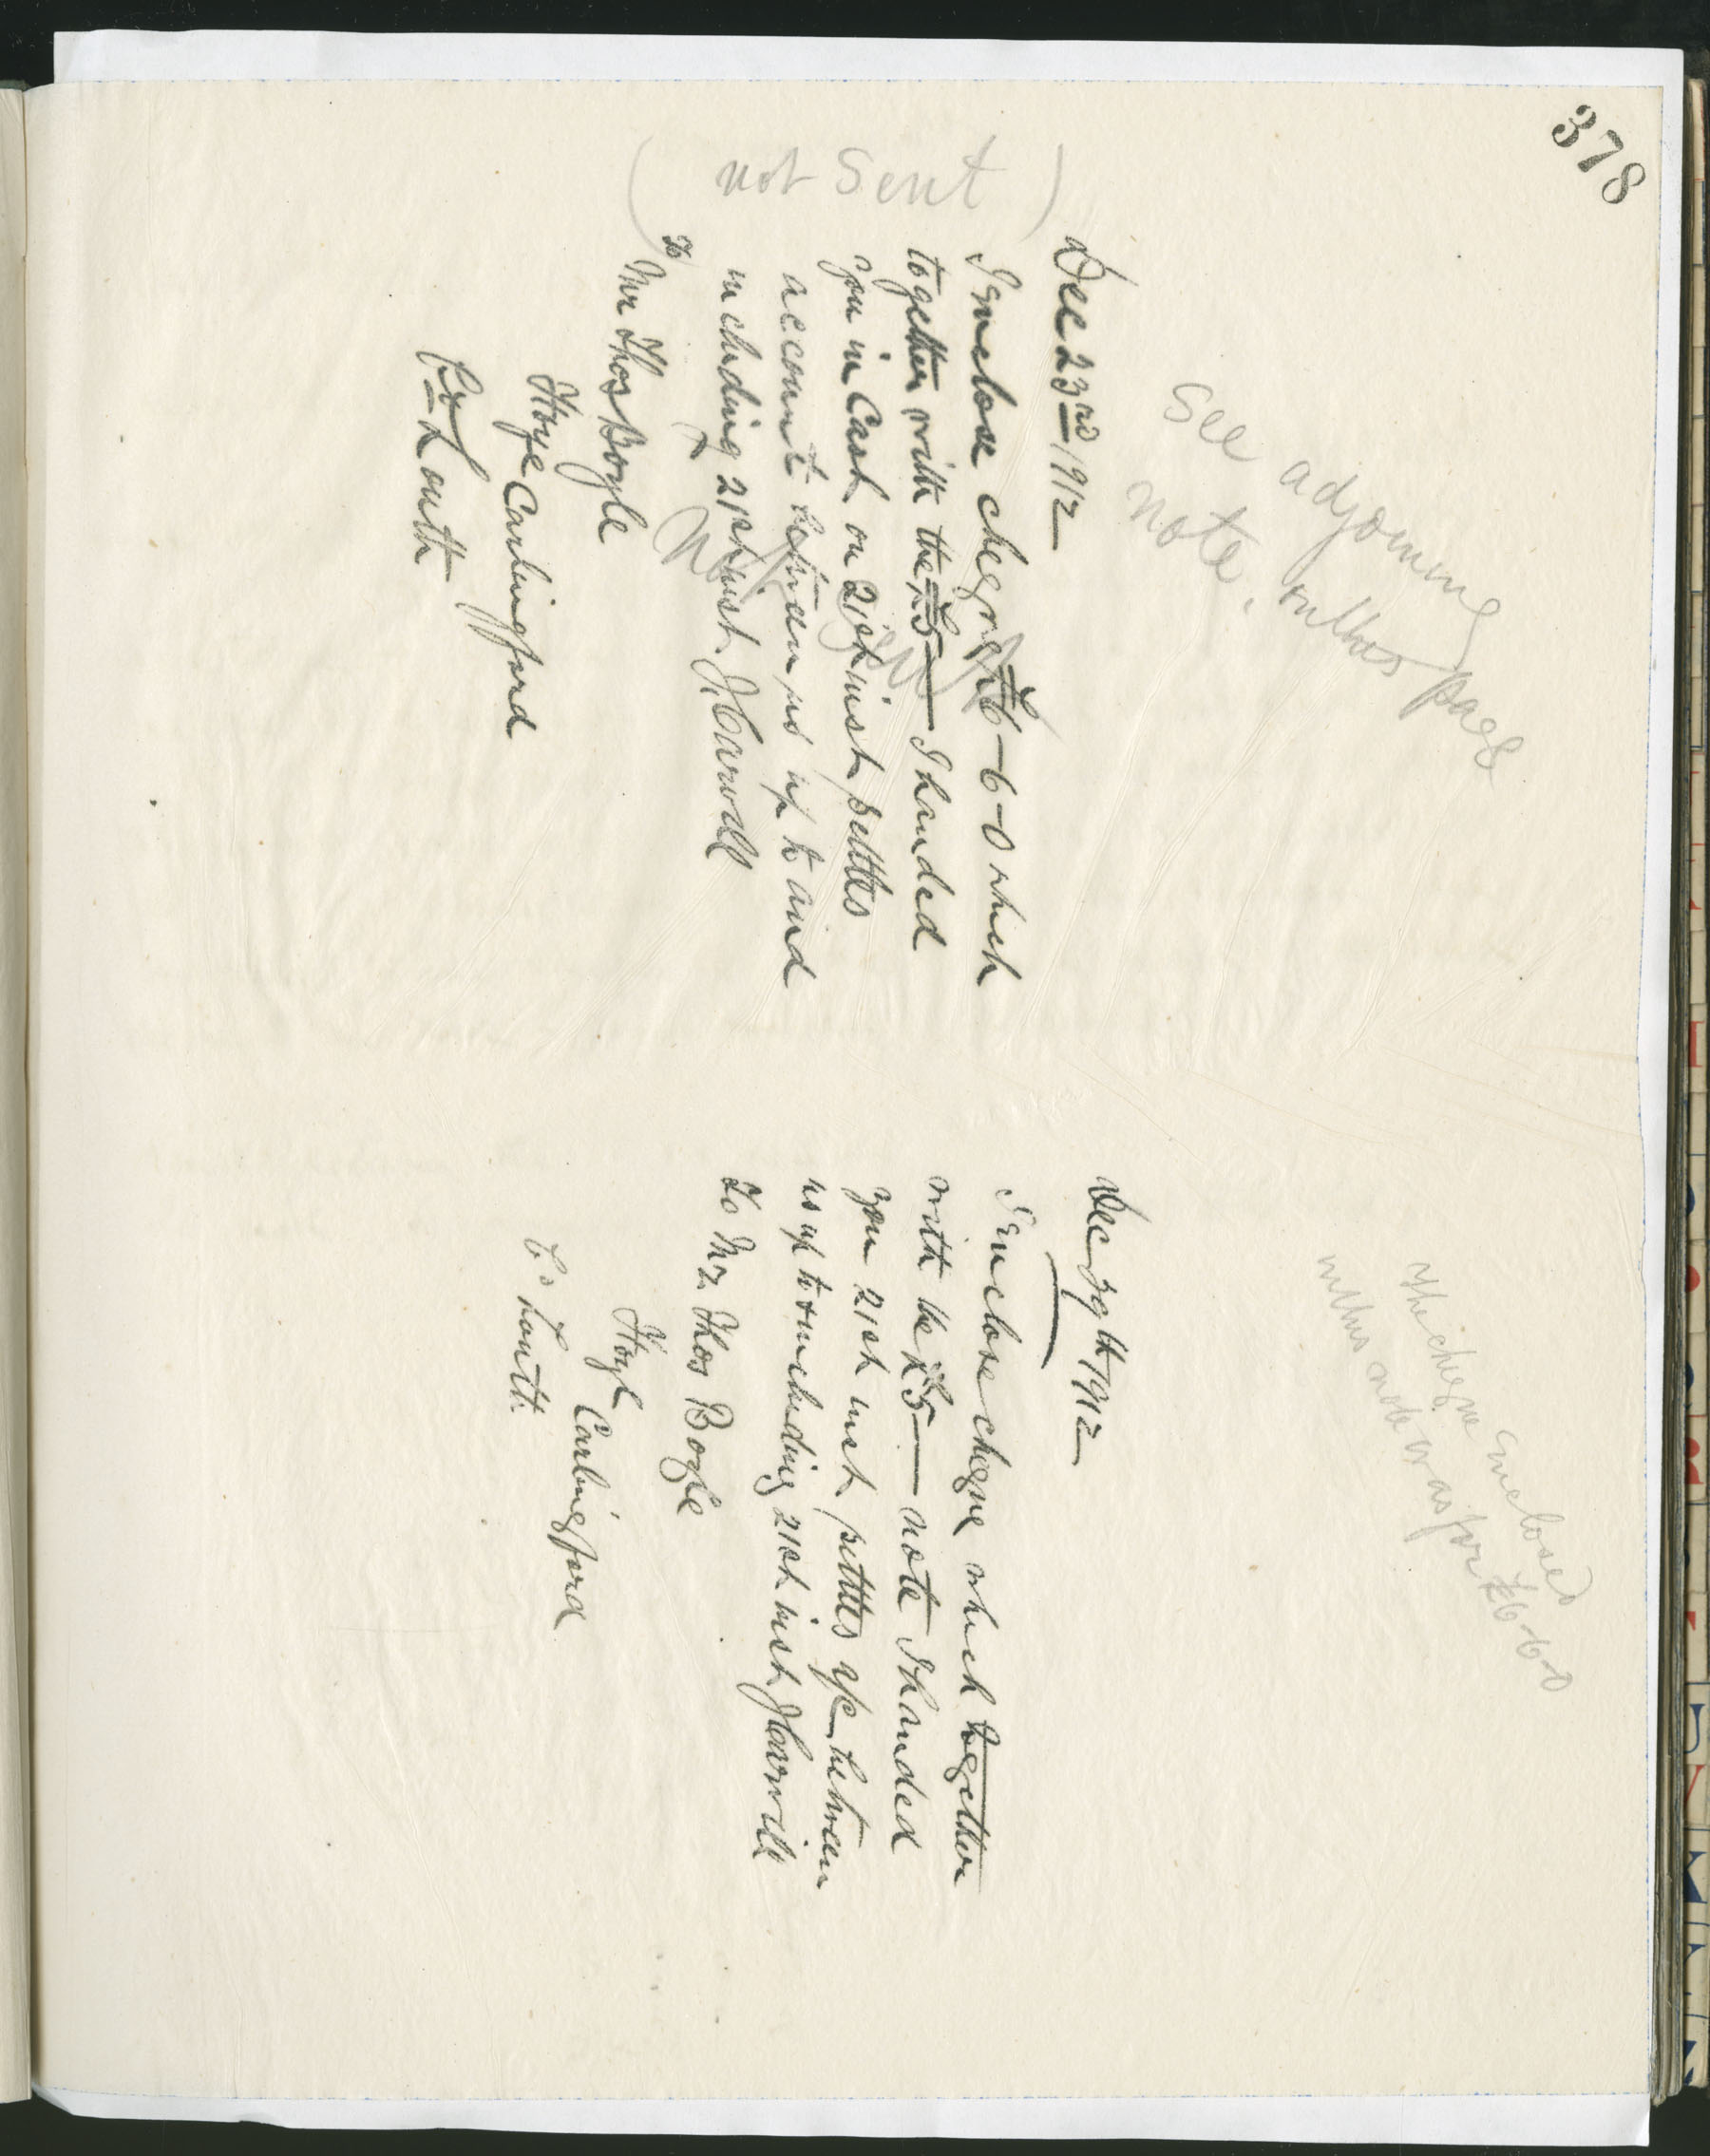 378
(not sent)
See adjoining
note, on this page
Dec 23rd 1912
I enclose cheque £6-6-0 which
together with the £5— I handed
you in Cash on 21st inst settles
account between us up to and
including 21st inst. J. Carvill
Not sent
To
Mr Thos Boyle
Carlingford
Co Louth
The cheque enclosed
in this note was for £6-6-0
1912
I enclose cheque which together
with the £5— note I handed
you 21st inst settles a/c between
us up to & including 21st inst J Carvill
To Mr. Thos Boyle
Carlingford
Co Louth.